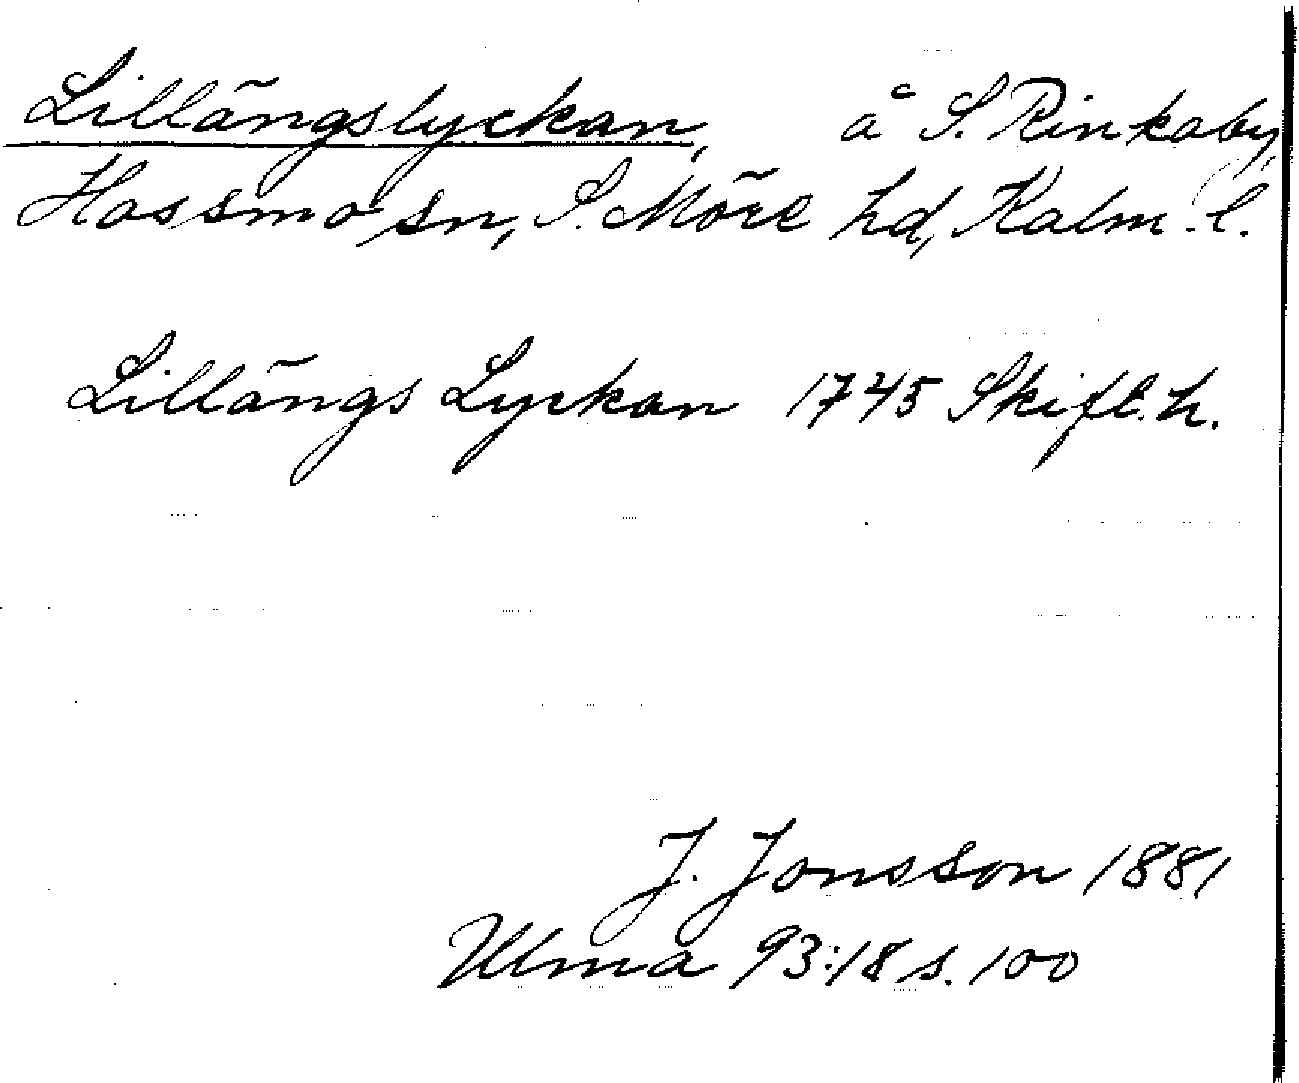 Lillängslyckan, å S. Rinkaby,
Hossmo sn, S. Möre hd, Kalm. l.
Lillängs Lyckan 1745 Skifl. h.
J. Jonsson 1881
Ulma 93:18 s. 100